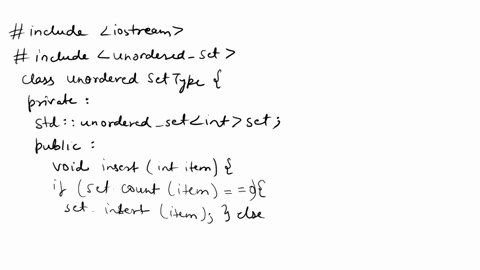 # include <iostream>
# include <unordered_set>
class unordered SetType {
private :
std :: unordered_set<int> set ;
public :
void insert (int item) {
if (set. count (item) = = 0) {
set. insert (item); } else